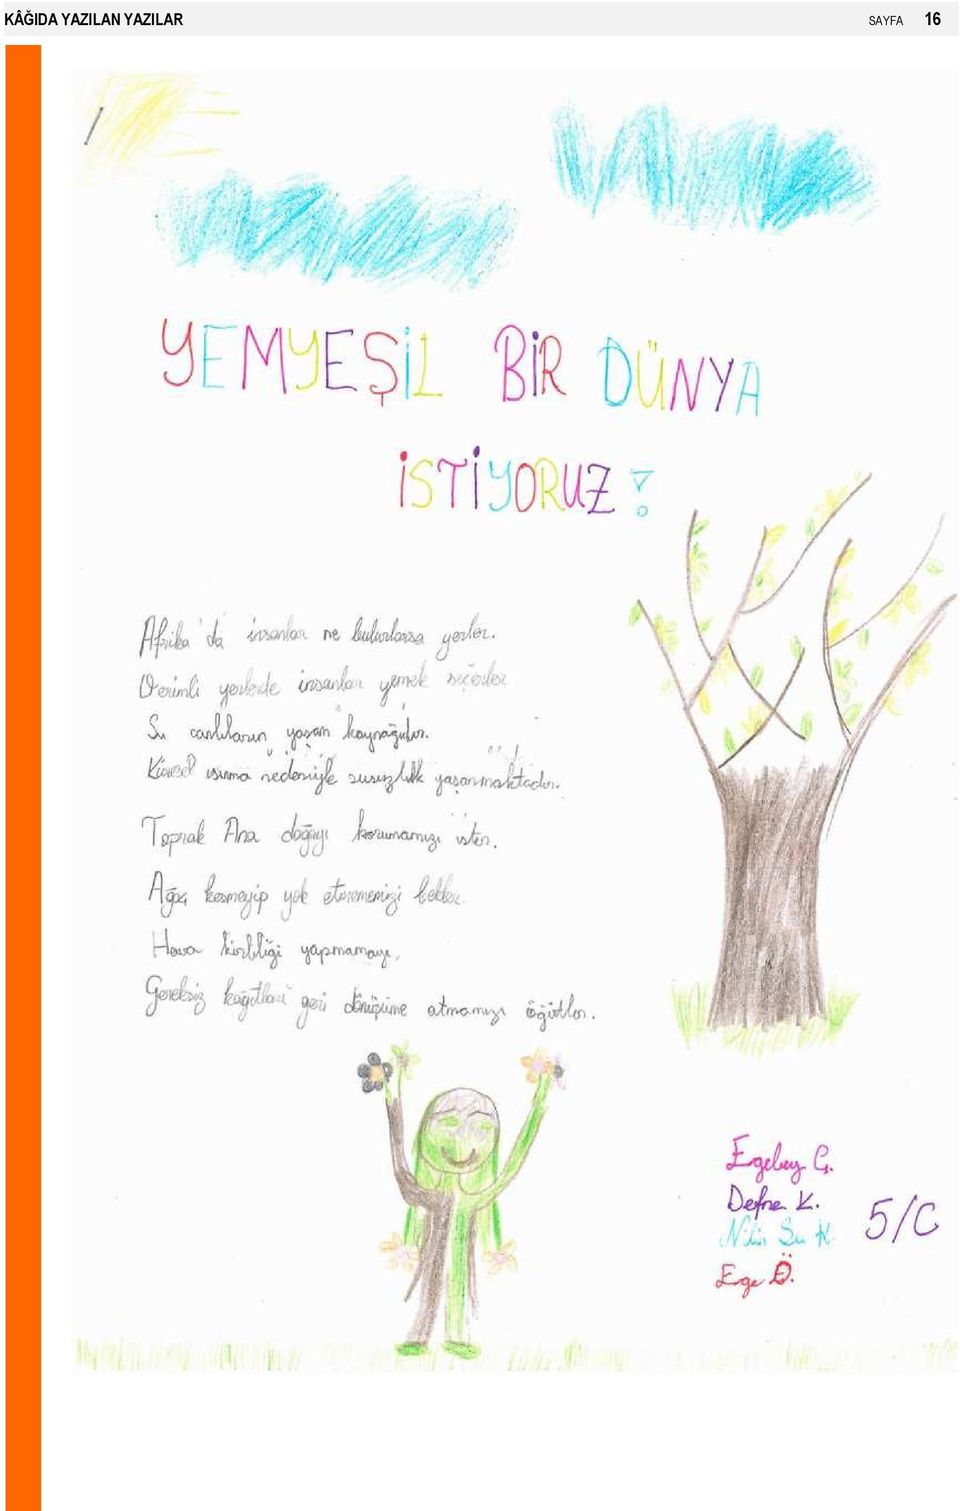 KÂĞIDA YAZILAN YAZILAR SAYFA 16
YEMYEŞİL BİR DÜNYA
İSTİYORUZ!
Afrika'da insanlar ne bulurlarsa yerler.
Verimli yerlerde insanlar yemek seçerler
Su canlıların yaşam kaynağıdır.
Küresel ısınma nedeniyle susuzluk yaşanmaktadır.
Toprak Ana doğayı korumamızı ister.
Ağaç kesmeyip yok etmememizi bekler.
Hava kirliliği yapmamayı,
Gereksiz kağıtları geri dönüşüme atmamızı öğütler.
Egebey Ç.
Defne K.
Nilür Su K
5/C
Ege Ö.